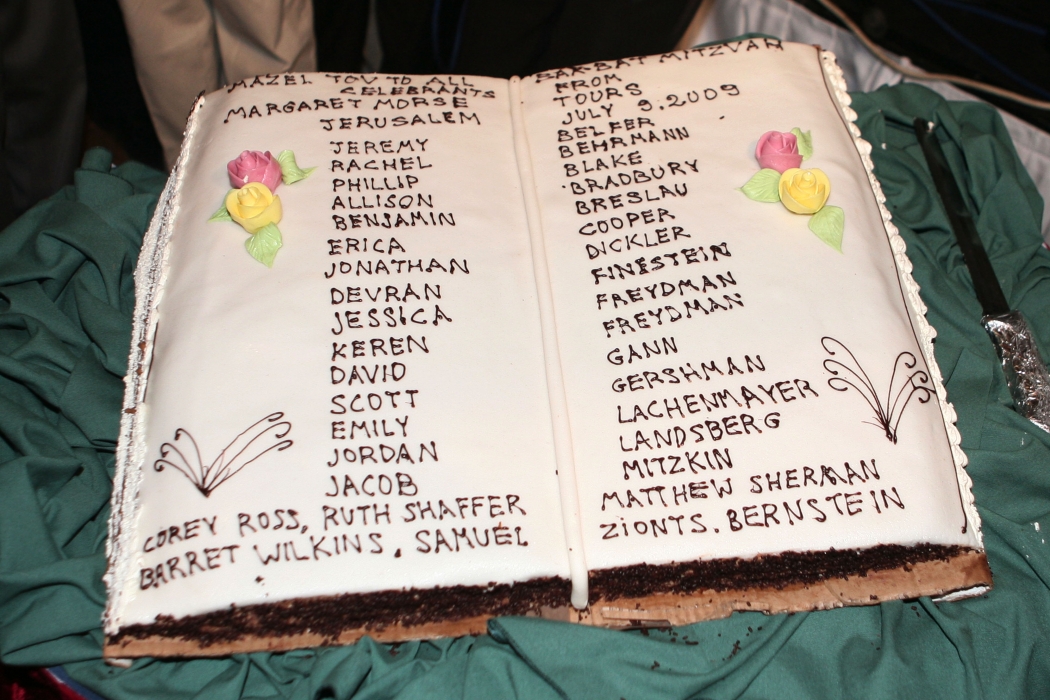 MAZEL TOV TO ALL BAR-BAT MITZVAH
CELEBRANTS FROM
MARGARET MORSE TOURS
JERUSALEM JULY 9.2009
JEREMY BELFER
RACHEL BEHRMANN
PHILLIP BLAKE
ALLISON BRADBURY
BENJAMIN BRESLAU
ERICA COOPER
JONATHAN DICKLER
DEVRAN FINESTEIN
JESSICA FREYDMAN
KEREN FREYDMAN
DAVID GANN
SCOTT GERSHMAN
EMILY LACHENMAYER
JORDAN LANDSBERG
JACOB MITZKIN
COREY ROSS, RUTH SHAFFER MATTHEW SHERMAN
BARRET WILKINS. SAMUEL ZIONTS. BERNSTEIN